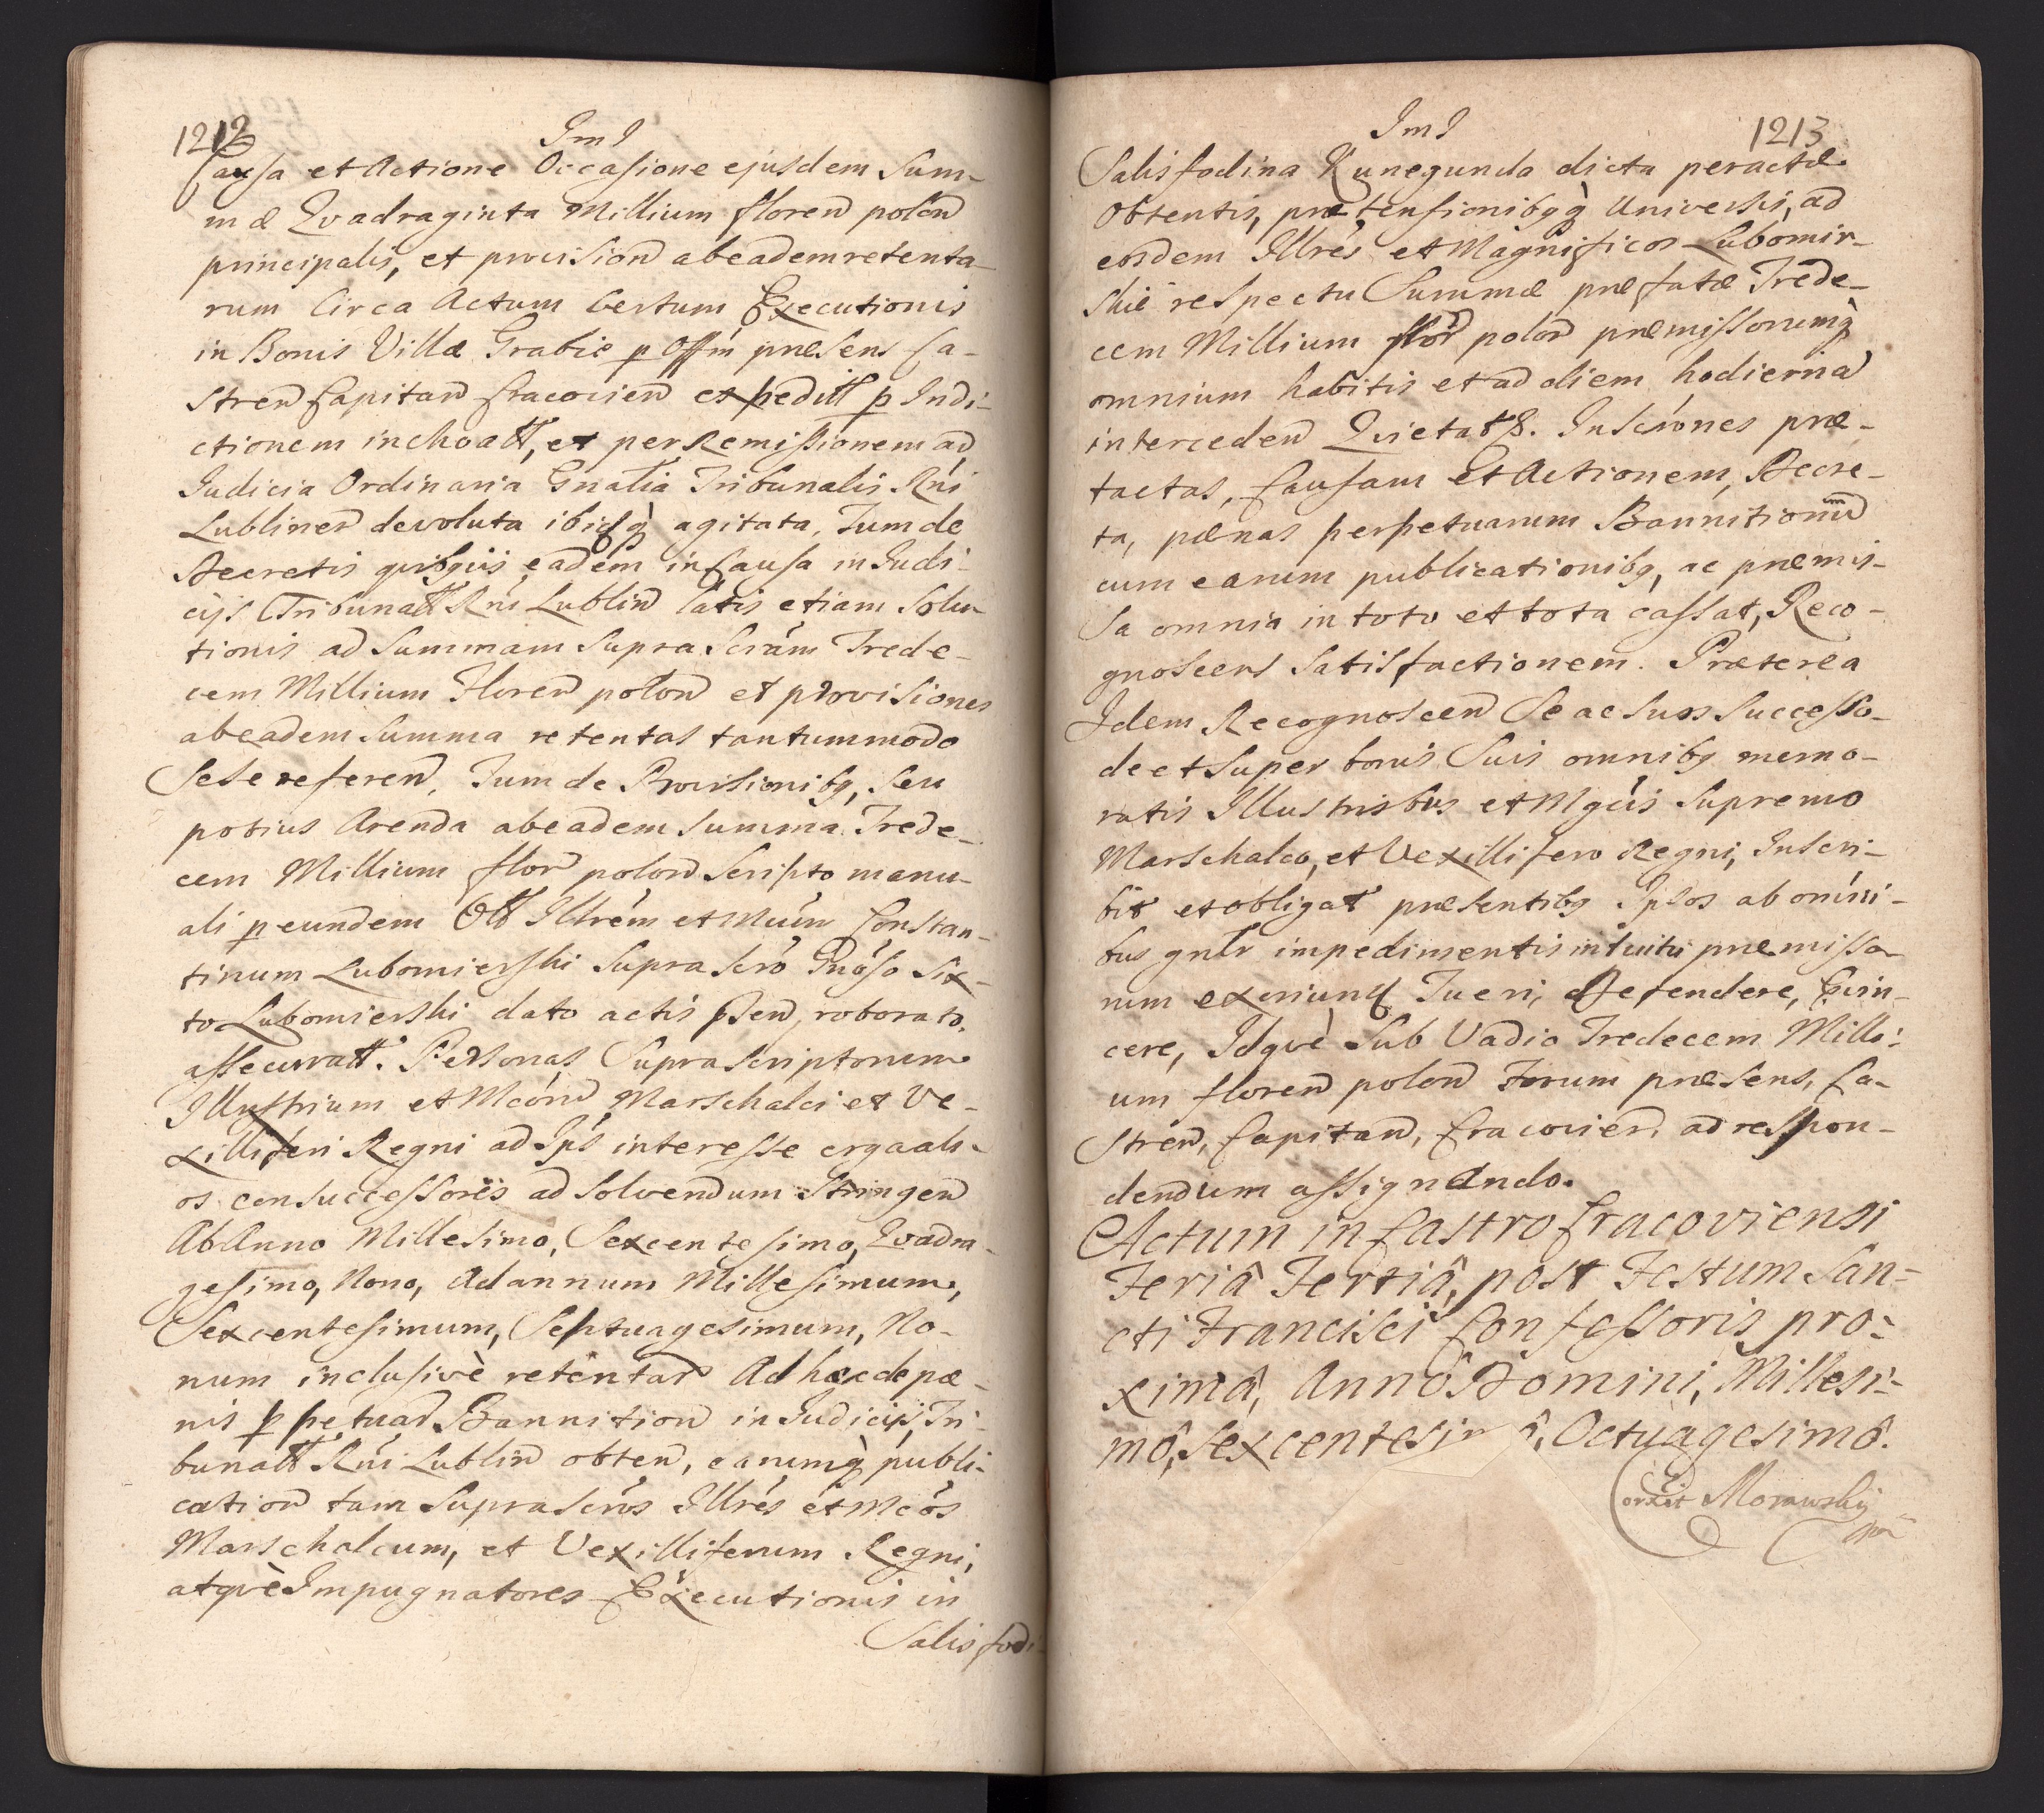 1212
JmJ
Causa et Actione Occasione ejusdem Sum-
mæ Qvadraginta Millium floren polon
principalis, et provision ab eadem retenta-
rum Circa Actum Certum Executionis
in Bonis Villæ Grabie p Offm præsens Ca-
stren Capitan Cracovien expeditt p Indi-
ctionem inchoatt, et per Remissionem ad
Judicia Ordinaria Gnalia Tribunalis Rni
Lublinen devoluta ibidq agitata, Tum de
Decretis quibgvis eadem in Causa in Judi-
cijs Tribunatt Rni Lublin latis etiam Solu-
tionis ad Summam Supra Scram Trede-
cem Millium Floren polon et provisiones
ab eadem Summa retentas tantummodo
Sese referen, Tum de Provisionibg, Seu
potius Arenda ab eadem Summa Trede-
cem Millium flor polon Scripto manu-
ali p eundem Olt Illrem et Mcum Constan-
tinum Lubomierski Supra Scro Gnoso Six-
to Lubomierski dato actis psen, roborato,
assecuratt. Personas Suprascriptorum
Illustrium et Mcorum Marschalci et Ve-
xilliferi Regni ad Ips interesse erga ali-
os consuccessores ad Solvendum Stringen
Ab Anno Millesimo, Sexcentesimo, Qvadra-
gesimo, Nono, Ad annum Millesimum,
Sexcentesimum, Septuagesimum, No-
num inclusivè retentar Ad hæc de pæ-
nis ppetuar Bannition in Judicijs Tri-
bunatt Rni Lublin obten, earumq publi-
cation tam Supra Scros Illres et Mcos
Marschalcum, et Vexilliferum Regni,
atqvè Impugnatores Executionis in
Salisfodi-
JmJ
1213
Salisfodina Kunegunda dicta peractæ
Obtentis, prætensionibgq Universis, ad
eosdem Illres et Magnificos Lubomir-
skie respectu Summæ præfatæ Trede-
cem Millium flor polon præmissorumq
omnium habitis et ad diem hodierna
interceden Qvietat &. Inscriones præ-
tactas, Causam et Actionem, Decre-
ta, pænas perpetuarum Bannitionum
cum earum publicationibg, ac præmis-
sa omnia in toto et tota cassat, Reco-
gnoscens Satisfactionem. Præterea
Idem Recognoscen Se ac Suos Successo-
de et Super bonis Suis omnibg memo-
ratis Illustribus et Mgcis Supremo
Marschalco, et Vexillifero Regni, Inscri-
bit et obligat præsentibg Ipsos ab omni-
bus gnlr impedimentis intuitu præmisso-
rum Tueri, Defendere, Evin-
cere, Idqvè Sub Vadio Tredecem Milli-
um floren polon Forum præsens, Ca-
stren, Capitan, Cracovien, ad respon-
dendum assignando.
Actum in Castro Cracoviensi
Feriâ Tertiâ, post Festum San-
cti Francisci Confessoris pro-
ximâ, Annô Domini, Millesi-
mô, Sexcentesimô, Octuagesimô.
Corxit Morawskij
mp